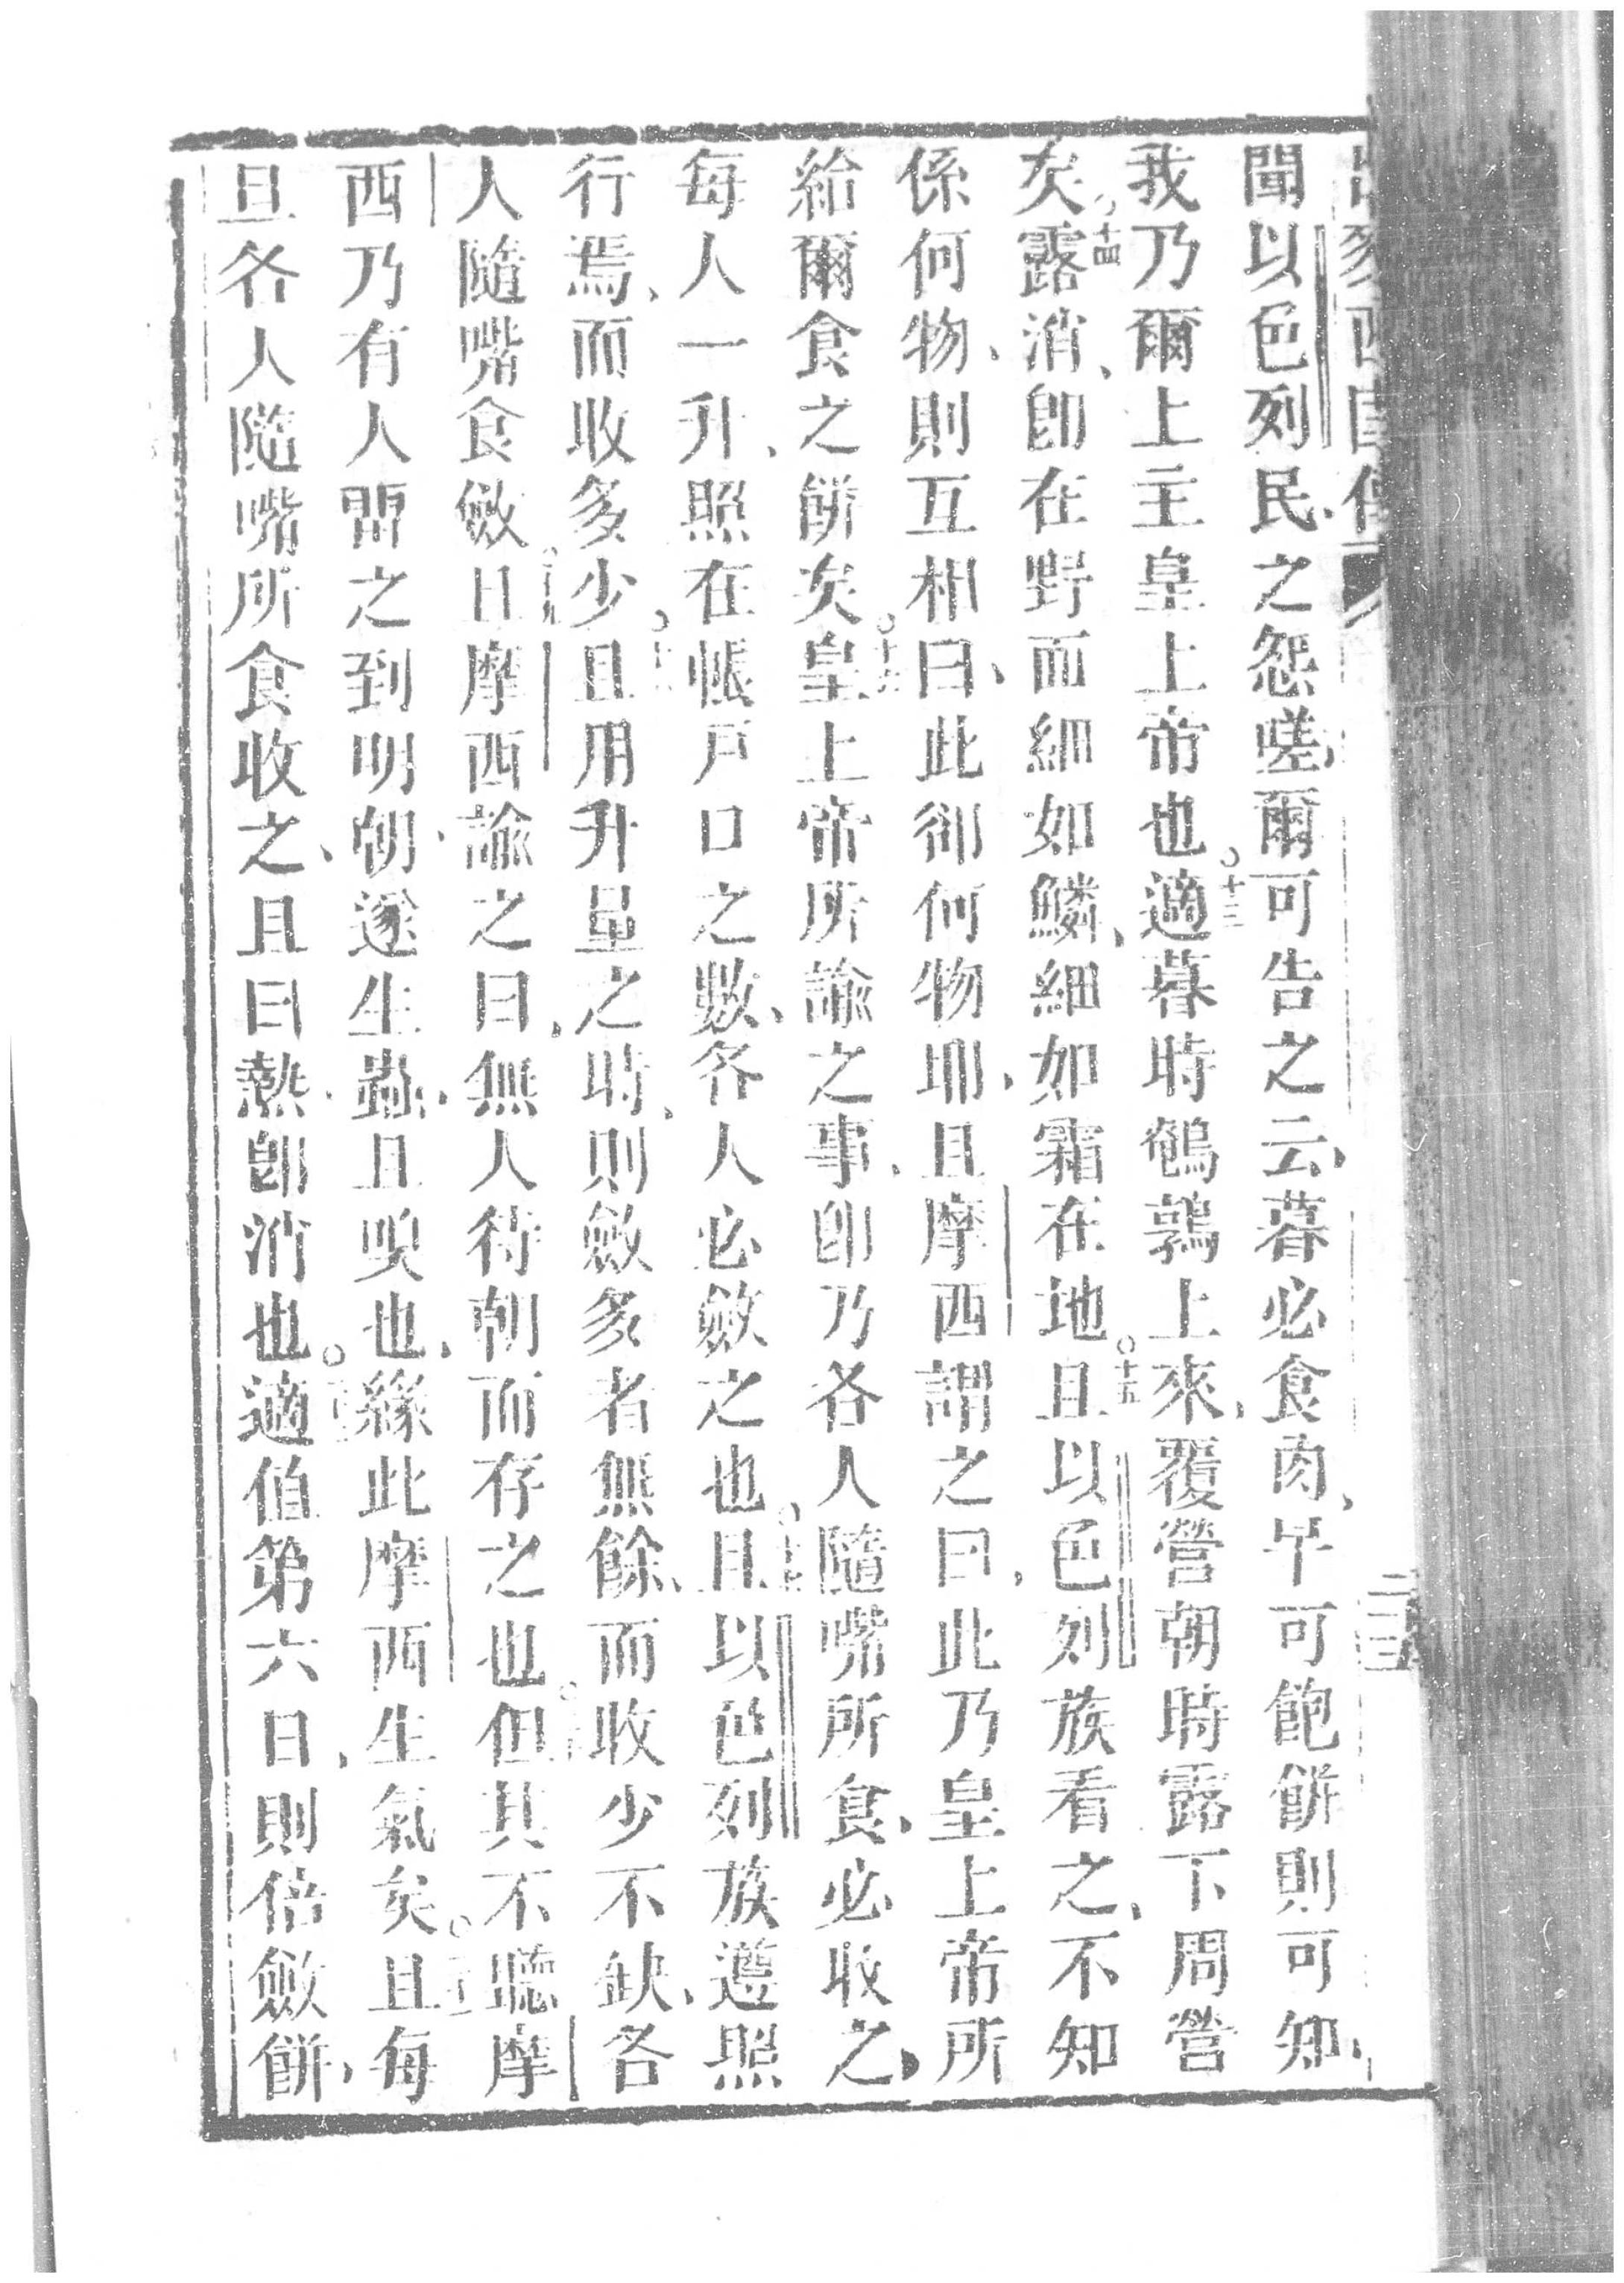 聞以色列民之怨嗟、爾可告之云、暮必食肉、早可飽餅則可知、
我乃爾上主皇上帝也。十三適暮時鵪鶉上來、覆營朝時露下周營
矣、十四露消、卽在野而細如鱗、細如霜在地。十五且以色列族看之、不知
係何物、則互相曰、此卻何物耶、且摩西謂之曰、此乃皇上帝所
給爾食之餅矣。皇上帝所諭之事、卽乃各人隨嘴所食、必收之、
每人一升、照在帳戶口之數、各人必斂之也。且以色列族遵照
行焉、而收多少。且用升量之時、則斂多者無餘、而收少不缺、各
人隨嘴食斂。且摩西諭之曰、無人待朝而存之也。但其不聽摩
西乃有人留之到明朝、遂生蟲、且臭也、緣此摩西生氣矣。且每
旦各人隨嘴所食收之、且曰熱、卽消也。適伯第六日、則倍斂餅、
二三